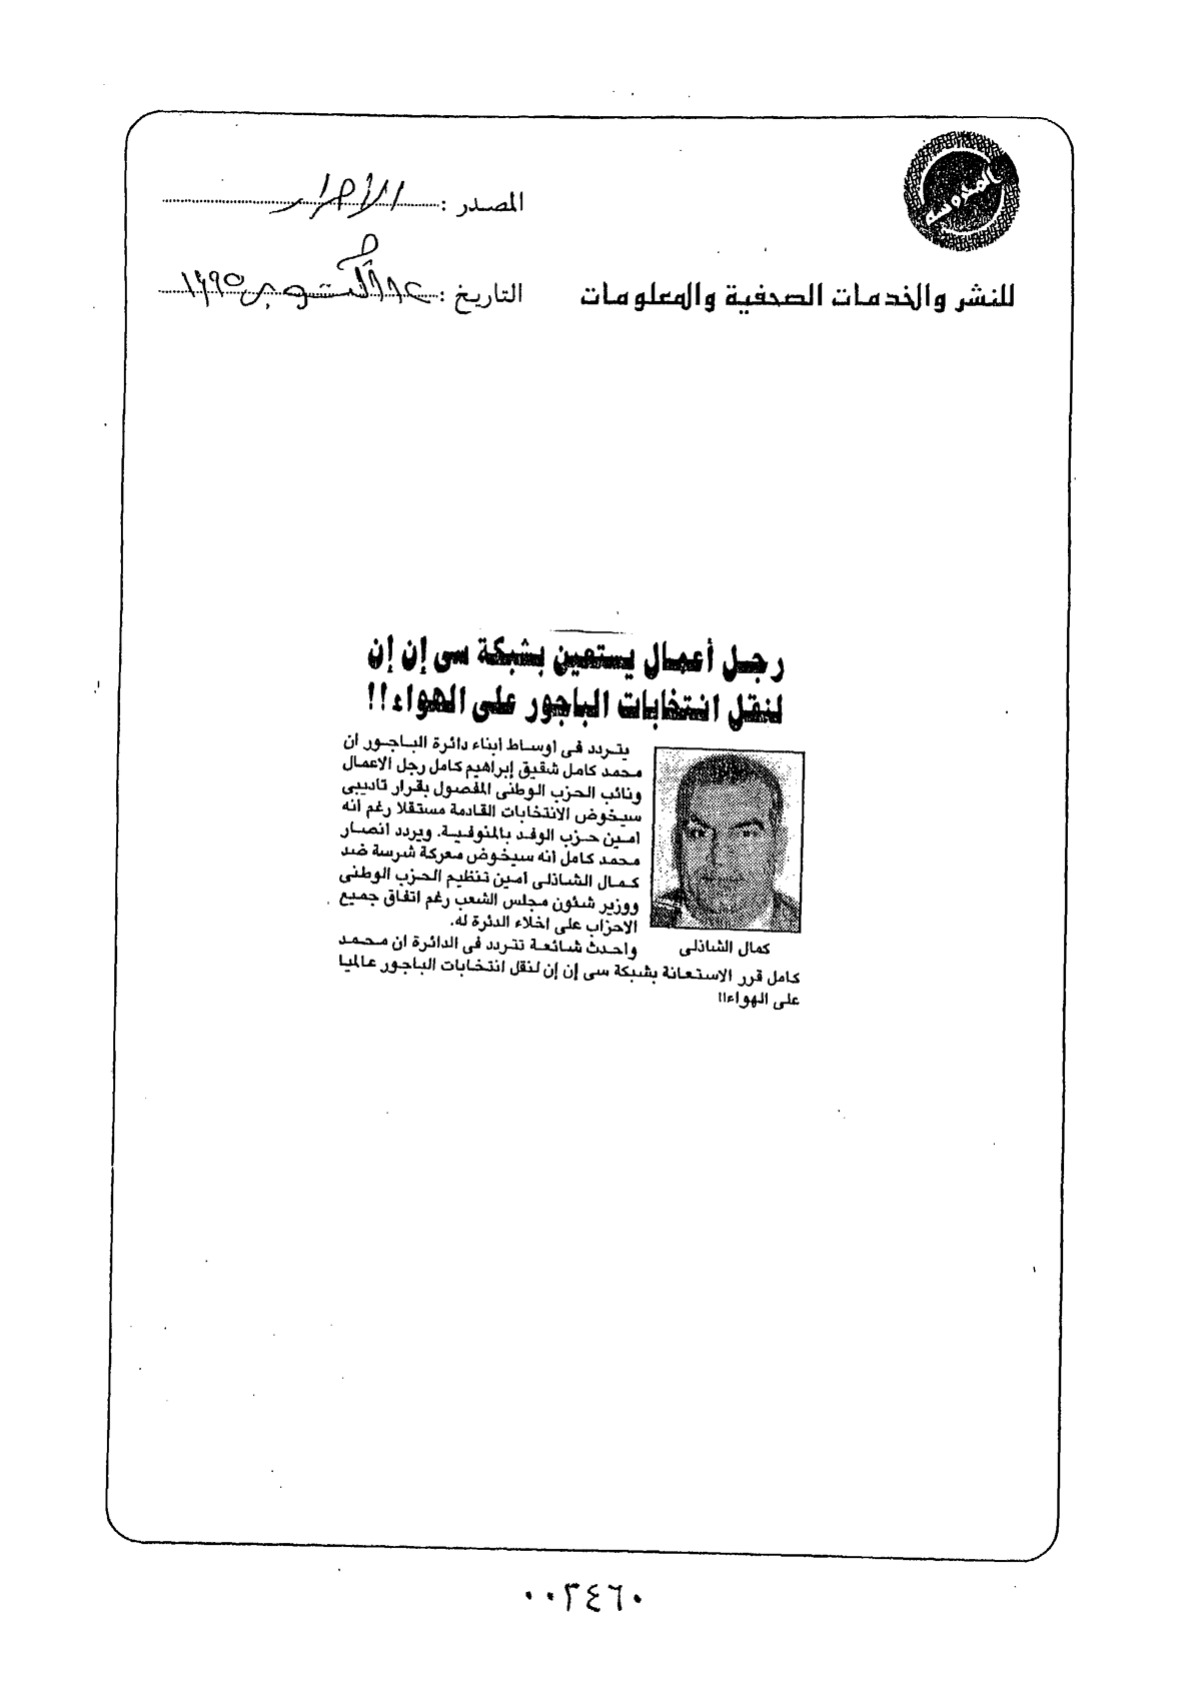 المصدر : الأحرار
التاريخ : أكتوبر ١٩٩٥
للنشر والخدمات الصحفية والمعلومات
رجل أعمال يستعين بشبكة سى إن إن
لنقل انتخابات الباجور على الهواء!!
يتردد فى اوساط ابناء دائرة الباجور ان
محمد كامل شقيق إبراهيم كامل رجل الاعمال
ونائب الحزب الوطنى المفصول بقرار تاديبى
سيخوض الانتخابات القادمة مستقلا رغم انه
امين حزب الوفد بالمنوفية. ويردد انصار
محمد كامل انه سيخوض معركة شرسة ضد
كمال الشاذلى امين تنظيم الحزب الوطنى
ووزير شئون مجلس الشعب رغم اتفاق جميع
الاحزاب على اخلاء الدئرة له.
واحدث شائعة تتردد فى الدائرة ان محمد
كامل قرر الاستعانة بشبكة سى إن إن لنقل انتخابات الباجور عالميا
على الهواء!!
كمال الشاذلى
٠٠٣٤٦٠